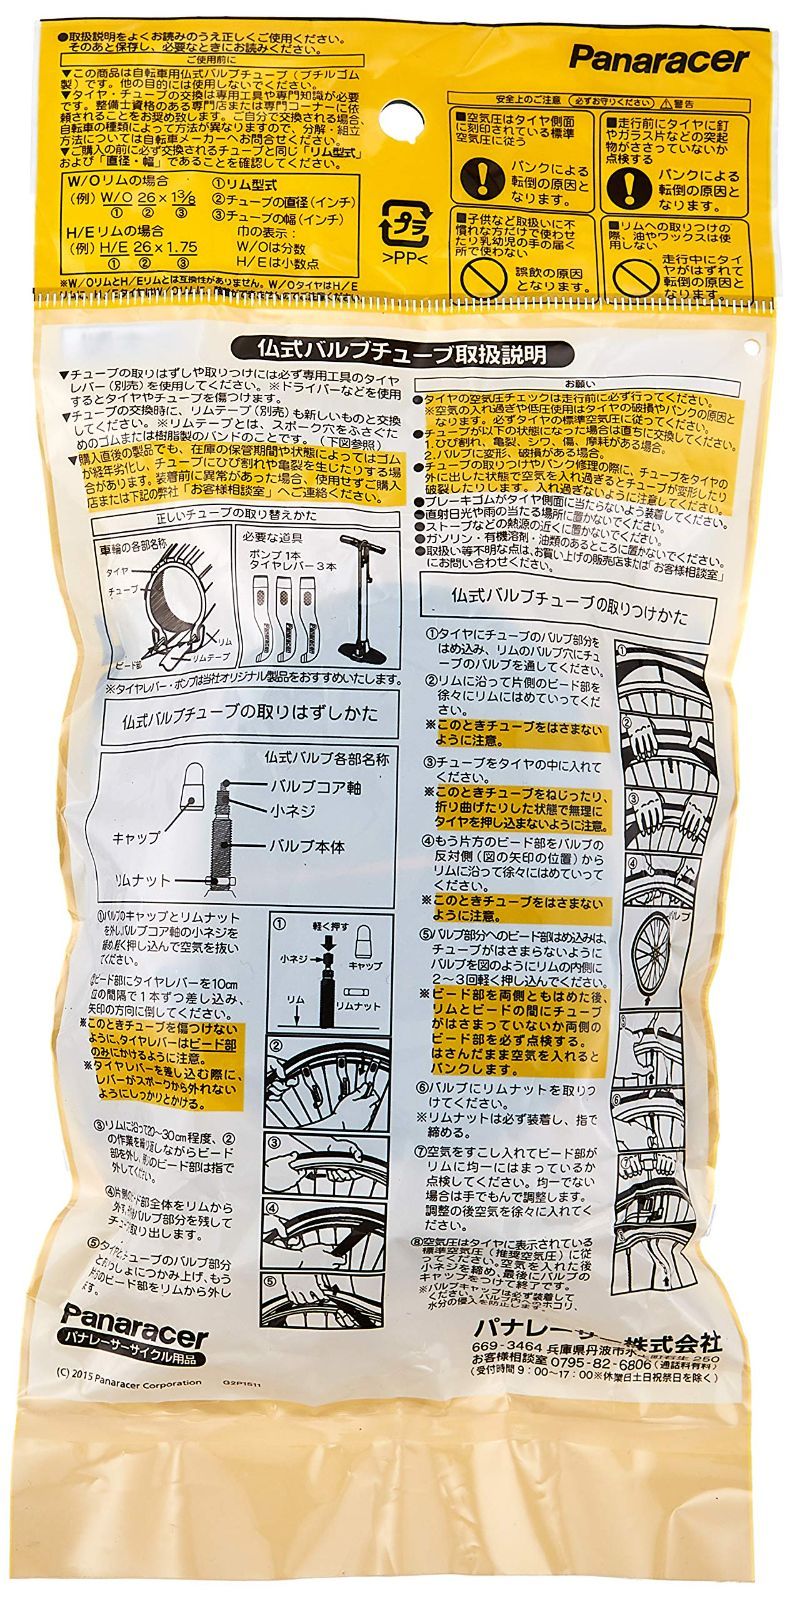 ●取扱説明をよくお読みのうえ正しくご使用ください。
そのあと保存し、必要なときにお読みください。
ご使用前に
▼この商品は自転車用仏式バルブチューブ(ブチルゴム
製)です。他の目的には使用しないでください。
▼タイヤ・チューブの交換は専用工具や専門知識が必要
です。整備士資格のある専門店または専門コーナーに依
頼されることをお奨め致します。ご自分で交換される場合、
自転車の種類によって方法が異なりますので、分解・組立
方法については自転車メーカーへお問合せください。
▼ご購入の前に必ず交換されるチューブと同じ「リム型式」
および「直径・幅」であることを確認してください。
W/Oリムの場合
(例) W/O 26×1 3/8
① ② ③
H/Eリムの場合
(例) H/E 26×1.75
① ② ③
①リム型式
②チューブの直径(インチ)
③チューブの幅(インチ)
巾の表示:
W/Oは分数
H/Eは小数点
※W/OリムとH/Eリムとは互換性がありません。W/OタイヤはH/E
プラ
>PP<
Panaracer
安全上のご注意 (必ずお守りください) ⚠警告
■空気圧はタイヤ側面
に刻印されている標準
空気圧に従う
パンクによる
転倒の原因と
なります。
■走行前にタイヤに釘
やガラス片などの突起
物がささっていないか
点検する
パンクによる
転倒の原因と
なります。
■子供など取扱いに不
慣れな方だけで使わせ
たり乳幼児の手の届く
所で使わない
誤飲の原因
となります。
■リムへの取りつけの
際、油やワックスは使
用しない
走行中にタイ
ヤがはずれて
転倒の原因と
なります。
仏式バルブチューブ取扱説明
▼チューブの取りはずしや取りつけには必ず専用工具のタイヤ
レバー(別売)を使用してください。※ドライバーなどを使用
するとタイヤやチューブを傷つけます。
▼チューブの交換時に、リムテープ(別売)も新しいものと交換
してください。※リムテープとは、スポーク穴をふさぐた
めのゴムまたは樹脂製のバンドのことです。(下図参照)
▼購入直後の製品でも、在庫の保管期間や状態によってはゴム
が経年劣化し、チューブにひび割れや亀裂を生じたりする場
合があります。装着前に異常があった場合、使用せずご購入
店または下記の弊社「お客様相談室」へご連絡ください。
正しいチューブの取り替えかた
車輪の各部名称
タイヤ
チューブ
ビード部
リム
リムテープ
必要な道具
ポンプ1本
タイヤレバー3本
Panaracer
Panaracer
Panaracer
※タイヤレバー・ポンプは当社オリジナル製品をおすすめいたします。
仏式バルブチューブの取りはずしかた
仏式バルブ各部名称
バルブコア軸
小ネジ
キャップ
バルブ本体
リムナット
①バルブのキャップとリムナット
を外しバルブコア軸の小ネジを
緩め軽く押し込んで空気を抜い
てください。
②ビード部にタイヤレバーを10cm
位の間隔で1本ずつ差し込み、
矢印の方向に倒してください。
※このときチューブを傷つけない
ように、タイヤレバーはビード部
のみにかけるように注意。
※タイヤレバーを差し込む際に、
レバーがスポークから外れない
ようにしっかりとかける。
③リムに沿って20〜30cm程度、②
の作業を繰り返しながらビード
部を外し、残りのビード部は指で
外してください。
④片側のビード部全体をリムから
外す。バルブ部分を残して
チューブ取り出します。
⑤タイヤとチューブのバルブ部分
をいっしょにつかみ上げ、もう
片方のビード部をリムから外し
ます。
① 軽く押す
小ネジ
キャップ
リム
リムナット
②
③
④
⑤
お願い
●タイヤの空気圧チェックは走行前に必ず行ってください。
※空気の入れ過ぎや低圧使用はタイヤの破損やパンクの原因と
なります。必ずタイヤの標準空気圧に従ってください。
●チューブが以下の状態になった場合は直ちに交換してください。
1.ひび割れ、亀裂、シワ、傷、摩耗がある場合。
2.バルブに変形、破損がある場合。
●チューブの取りつけやパンク修理の際に、チューブをタイヤの
外に出した状態で空気を入れ過ぎるとチューブが変形したり
破裂したりします。入れ過ぎないように注意してください。
●ブレーキゴムがタイヤ側面に当たらないよう装着してください。
●直射日光や雨の当たる場所に置かないでください。
●ストーブなどの熱源の近くに置かないでください。
●ガソリン・有機溶剤・油類のあるところに置かないでください。
●取扱い等不明な点は、お買い上げの販売店または「お客様相談室」
にお問い合わせください。
仏式バルブチューブの取りつけかた
①タイヤにチューブのバルブ部分を
はめ込み、リムのバルブ穴にチュ
ーブのバルブを通してください。
②リムに沿って片側のビード部を
徐々にリムにはめていってくだ
さい。
※このときチューブをはさまない
ように注意。
③チューブをタイヤの中に入れて
ください。
※このときチューブをねじったり、
折り曲げたりした状態で無理に
タイヤを押し込まないように注意。
④もう片方のビード部をバルブの
反対側(図の矢印の位置)から
リムに沿って徐々にはめていって
ください。
※このときチューブをはさまない
ように注意。
⑤バルブ部分へのビード部はめ込みは、
チューブがはさまらないように
バルブを図のようにリムの内側に
2〜3回軽く押し込んでください。
※ビード部を両側ともはめた後、
リムとビードの間にチューブ
がはさまっていないか両側の
ビード部を必ず点検する。
はさんだまま空気を入れると
パンクします。
⑥バルブにリムナットを取りつ
けてください。
※リムナットは必ず装着し、指で
締める。
⑦空気をすこし入れてビード部が
リムに均一にはまっているか
点検してください。均一でない
場合は手でもんで調整します。
調整の後空気を徐々に入れてく
ださい。
⑧空気圧はタイヤに表示されている
標準空気圧(推奨空気圧)に従
ってください。空気を入れた後
小ネジを締め、最後にバルブの
キャップをつけて終了です。
※バルブキャップは必ず装着して
ください。バルブ内へのホコリ、
水分の侵入を防止します。
①
②
③
④
バルブ
⑤
⑥
⑦
Panaracer
パナレーサーサイクル用品
(C) 2015 Panaracer Corporation G2P1511
パナレーサー株式会社
669-3464 兵庫県丹波市氷上町石生250
お客様相談室 0795-82-6806(通話料有料)
(受付時間9:00〜17:00※休業日土日祝祭日を除く)